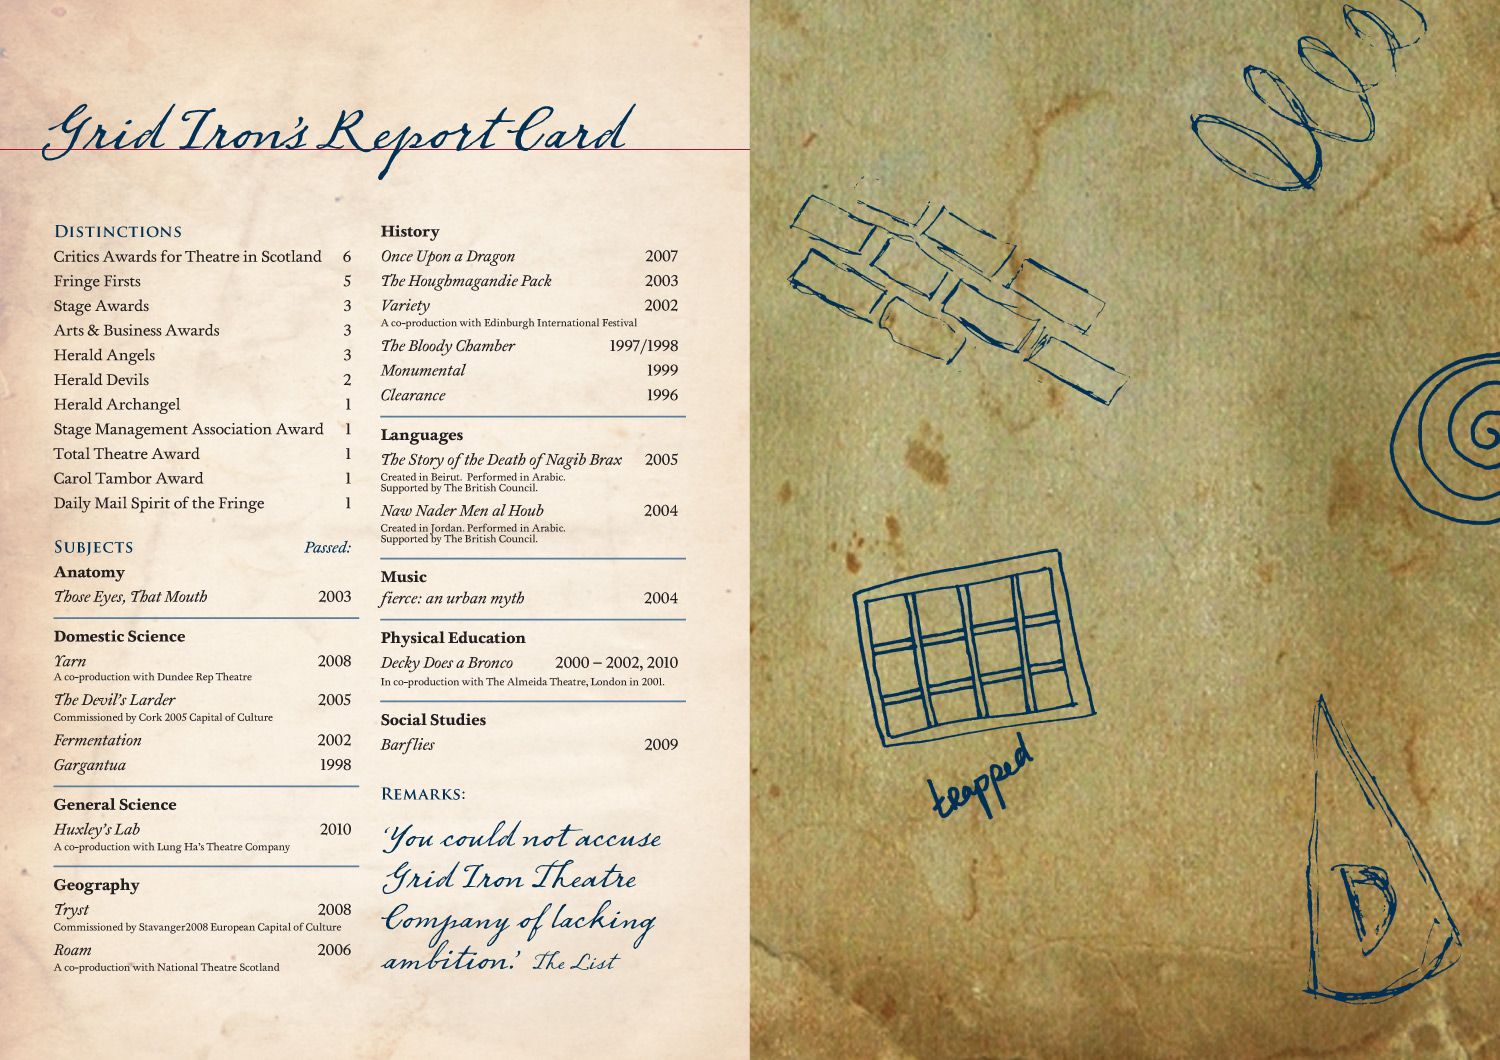 Grid Iron's Report Card
DISTINCTIONS
Critics Awards for Theatre in Scotland 6
Fringe Firsts 5
Stage Awards 3
Arts & Business Awards 3
Herald Angels 3
Herald Devils 2
Herald Archangel 1
Stage Management Association Award 1
Total Theatre Award 1
Carol Tambor Award 1
Daily Mail Spirit of the Fringe 1
SUBJECTS Passed:
Anatomy
Those Eyes, That Mouth 2003
Domestic Science
Yarn 2008
A co-production with Dundee Rep Theatre
The Devil's Larder 2005
Commissioned by Cork 2005 Capital of Culture
Fermentation 2002
Gargantua 1998
General Science
Huxley's Lab 2010
A co-production with Lung Ha's Theatre Company
Geography
Tryst 2008
Commissioned by Stavanger2008 European Capital of Culture
Roam 2006
A co-production with National Theatre Scotland
History
Once Upon a Dragon 2007
The Houghmagandie Pack 2003
Variety 2002
A co-production with Edinburgh International Festival
The Bloody Chamber 1997/1998
Monumental 1999
Clearance 1996
Languages
The Story of the Death of Nagib Brax 2005
Created in Beirut. Performed in Arabic.
Supported by The British Council.
Naw Nader Men al Houb 2004
Created in Jordan. Performed in Arabic.
Supported by The British Council.
Music
fierce: an urban myth 2004
Physical Education
Decky Does a Bronco 2000 – 2002, 2010
In co-production with The Almeida Theatre, London in 2001.
Social Studies
Barflies 2009
REMARKS:
'You could not accuse
Grid Iron Theatre
Company of lacking
ambition.' The List
trapped
D